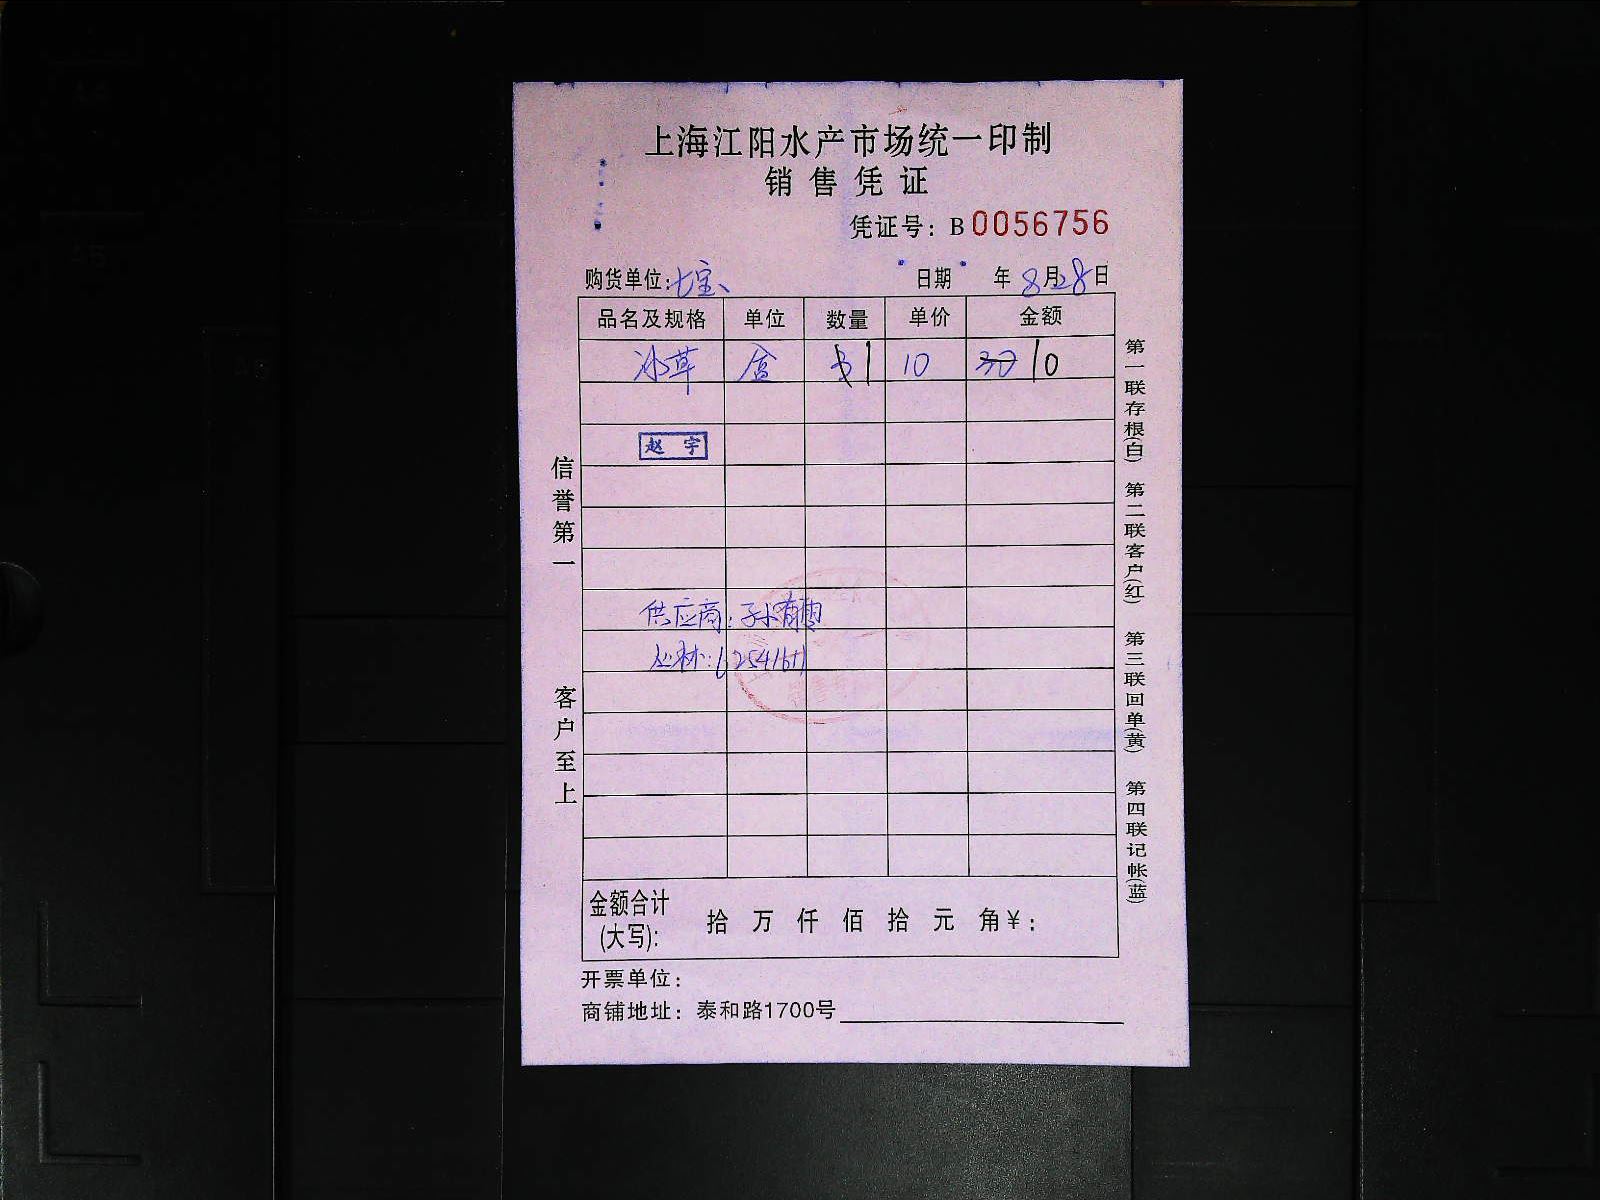 上海江阳水产市场统一印制
销售凭证
凭证号：B0056756
购货单位：七宝、 日期 年8月28日
品名及规格 单位 数量 单价 金额
冰草 盒 1 10 10
赵宇
供应商：孙有雷
丛林：
信誉第一 客户至上
第一联存根(白) 第二联客户(红) 第三联回单(黄) 第四联记帐(蓝)
金额合计(大写)： 拾 万 仟 佰 拾 元 角¥：
开票单位：
商铺地址：泰和路1700号